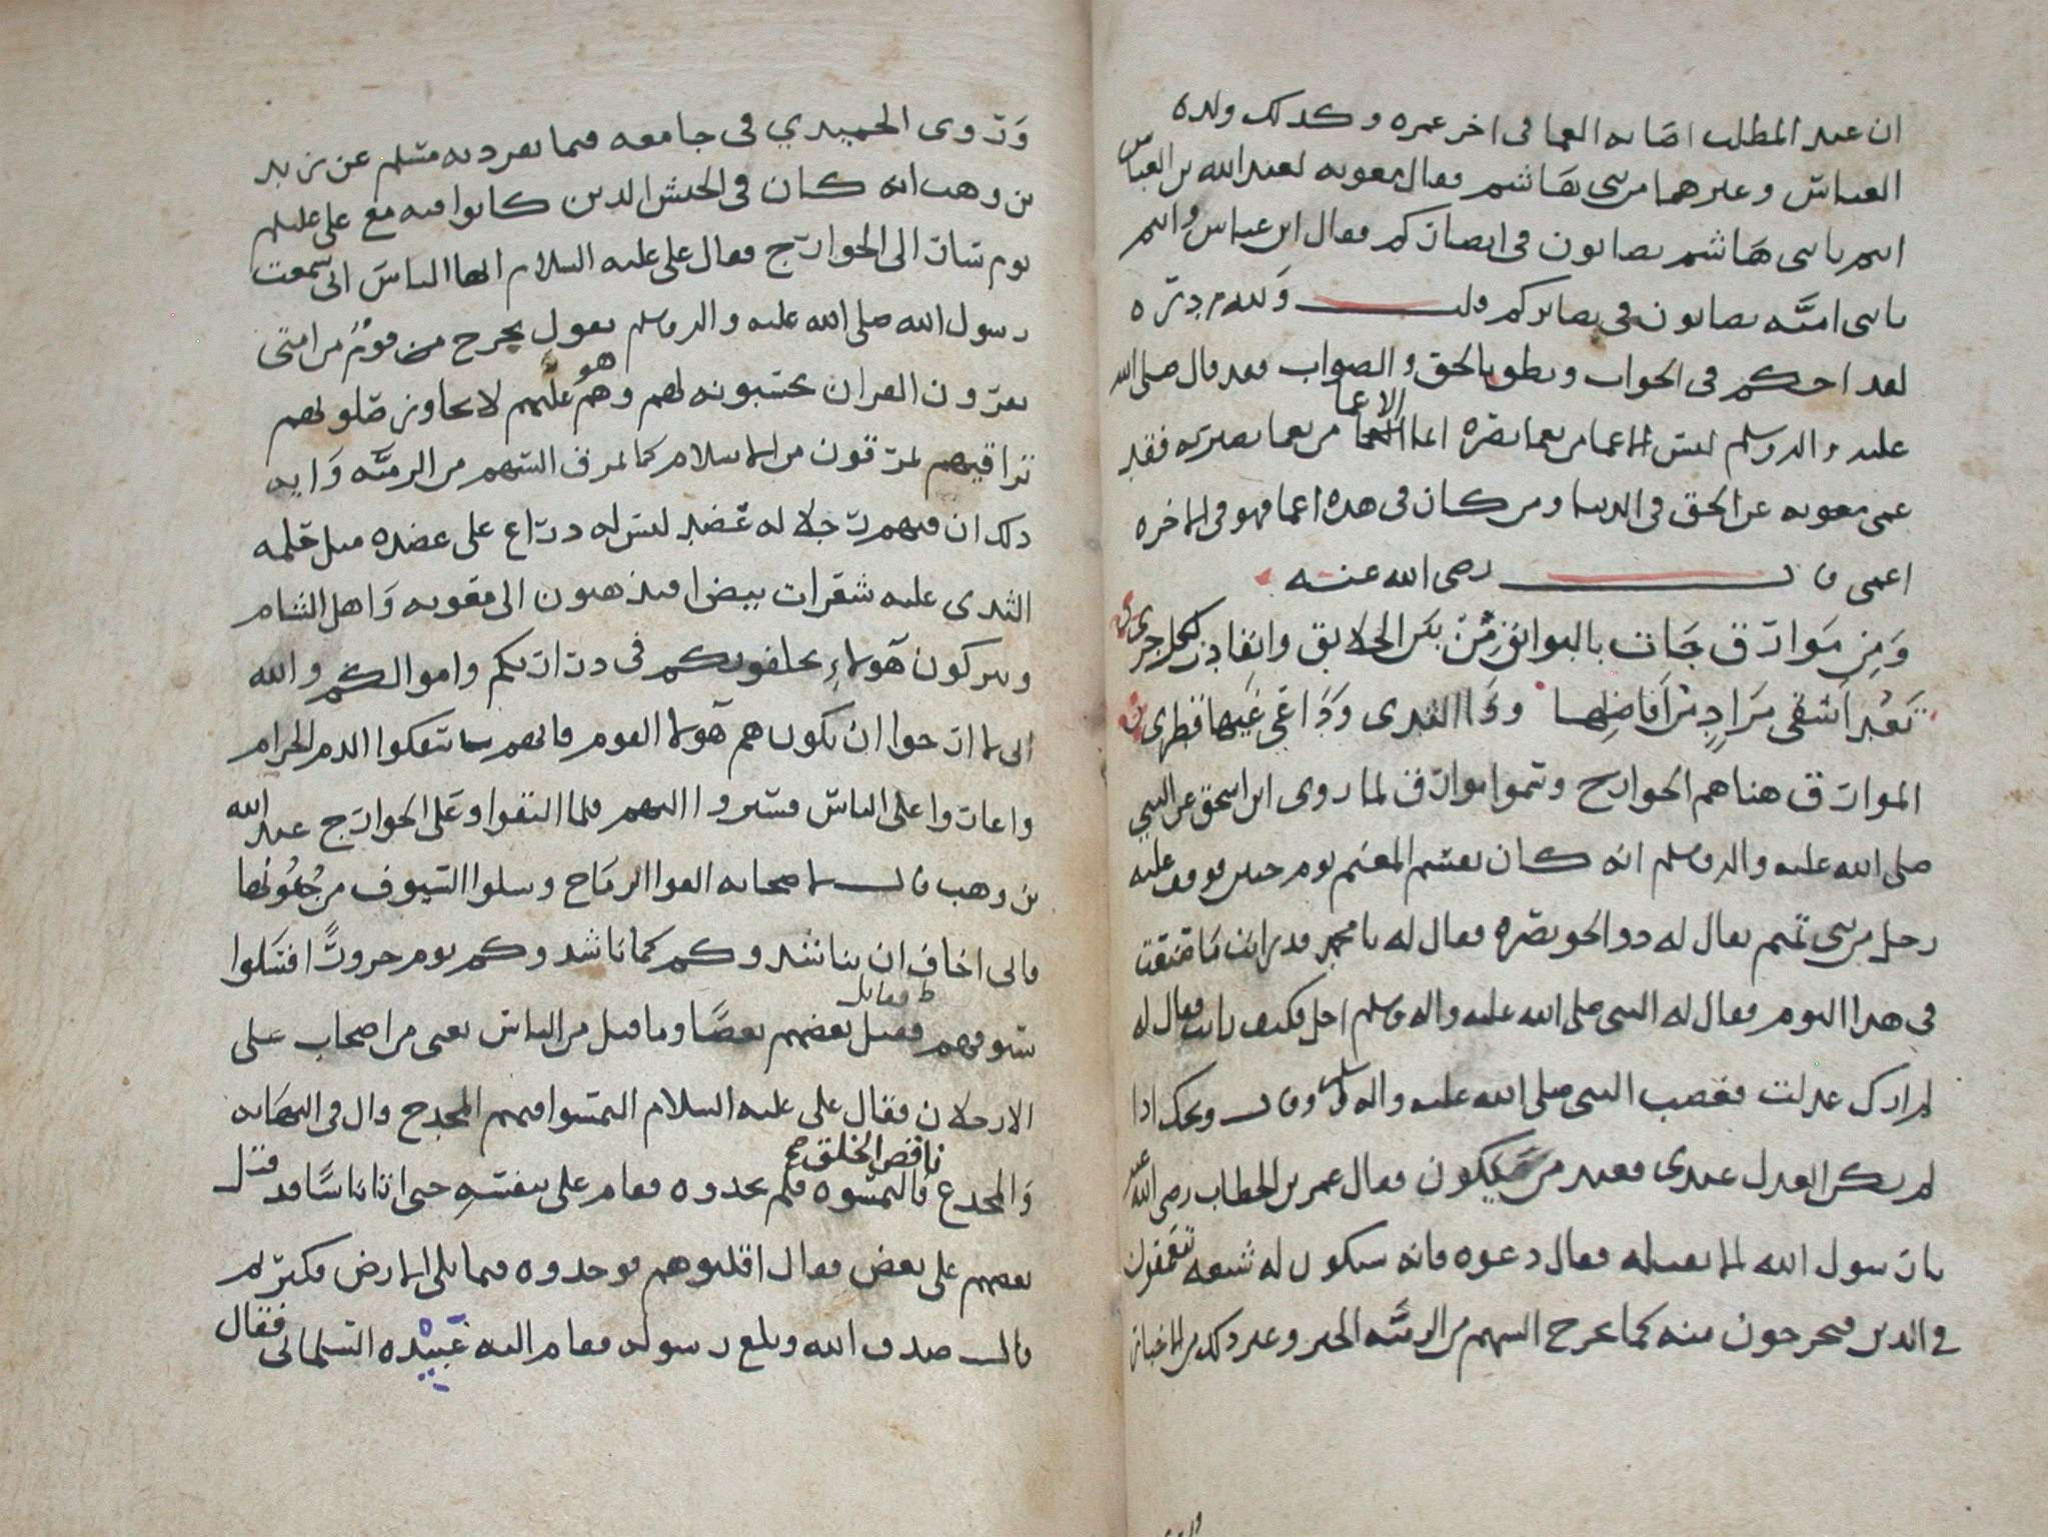 ان عبد المطلب اصابه العما في اخر عمره وكذلك ولده
العباس وغيرهما من بني هاشم فقال معوية لعبد الله بن العباس
انتم يا بني هاشم تصابون في ابصاركم فقال ابن عباس وانتم
يا بني امية تصابون في بصائركم قلت ولله دره
لقد احكم في الجواب ونطق بالحق والصواب فقد قال صلى الله
عليه واله وسلم ليس الاعما من يعما بصره انما الاعما من يعما بصيرته فقد
عمى معوية عن الحق في الدنيا ومن كان في هذه اعما فهو في الاخره
اعمى قال رضى الله عنه
ومن موارق جات بالبوائق من بين الخلايق وانقادت لكل جرى
تعبد اشقى مراد من افاضلها وذا الثدى وداعي غيها قطرى
الموارق هنا هم الخوارج وسموا موارق لما روى ابن اسحق عن النبي
صلى الله عليه واله وسلم انه كان يقسم المغنم يوم حنين فوقف عليه
رجل من بني تميم يقال له ذو الخويصره فقال له يا محمد قد رايت ما صنعت
في هذا اليوم فقال له النبي صلى الله عليه واله وسلم اجل فكيف رايت فقال له
لم ارك عدلت فغضب النبي صلى الله عليه واله وسلم وقال ويحك اذا
لم يكن العدل عندى فعند من يكون فقال عمر بن الخطاب رضى الله عنه
يا رسول الله الا نقتله فقال دعوه فانه سيكون له شيعه يتعمقون
في الدين فيخرجون منه كما يخرج السهم من الرمية الخبر وغير ذلك من الاخبار
وروى الحميدي في جامعه فيما تفرد به مسلم عن زيد
بن وهب انه كان في الجيش الذين كانوا فيه مع علي عليلم
يوم سار الى الخوارج فقال علي عليه السلام ايها الناس اني سمعت
رسول الله صلى الله عليه واله وسلم يقول يخرج من قوم من امتى
يقرون القران يحسبونه لهم وهو عليهم لا يجاوز صلوتهم
تراقيهم يمرقون من الاسلام كما يمرق السهم من الرمية واية
ذلك ان فيهم رجلا له عضد ليس له ذراع على عضده مثل حلمه
الثدى عليه شعرات بيض افتذهبون الى معوية واهل الشام
وتتركون هولاء يخلفونكم في ذراريكم واموالكم والله
اني لا ارجوا ان يكون هم هولا القوم فانهم سفكوا الدم الحرام
واغاروا على الناس فسيروا اليهم فلما التقوا وعلى الخوارج عبد الله
بن وهب قال لاصحابه القوا الرماح وسلوا السيوف من جفونها
فاني اخاف ان يناشدوكم كما ناشدوكم يوم حروراً اقتتلوا
سيوفهم فقتل بعضهم بعضا وما قتل من الناس يعني من اصحاب علي
الا رجلان فقال علي عليه السلام التمسوا فيهم المخدج قال في النهايه
والمخدع ناقص الخلق صح فالتمسوه فلم يجدوه فقام علي بنفسه حتى اتا ناسا قد قتل
بعضهم على بعض فقال اقلبوهم فوجدوه فيما يلي الارض فكبر ثم
قال صدق الله وبلغ رسوله فقام اليه عبيده السلماني فقال